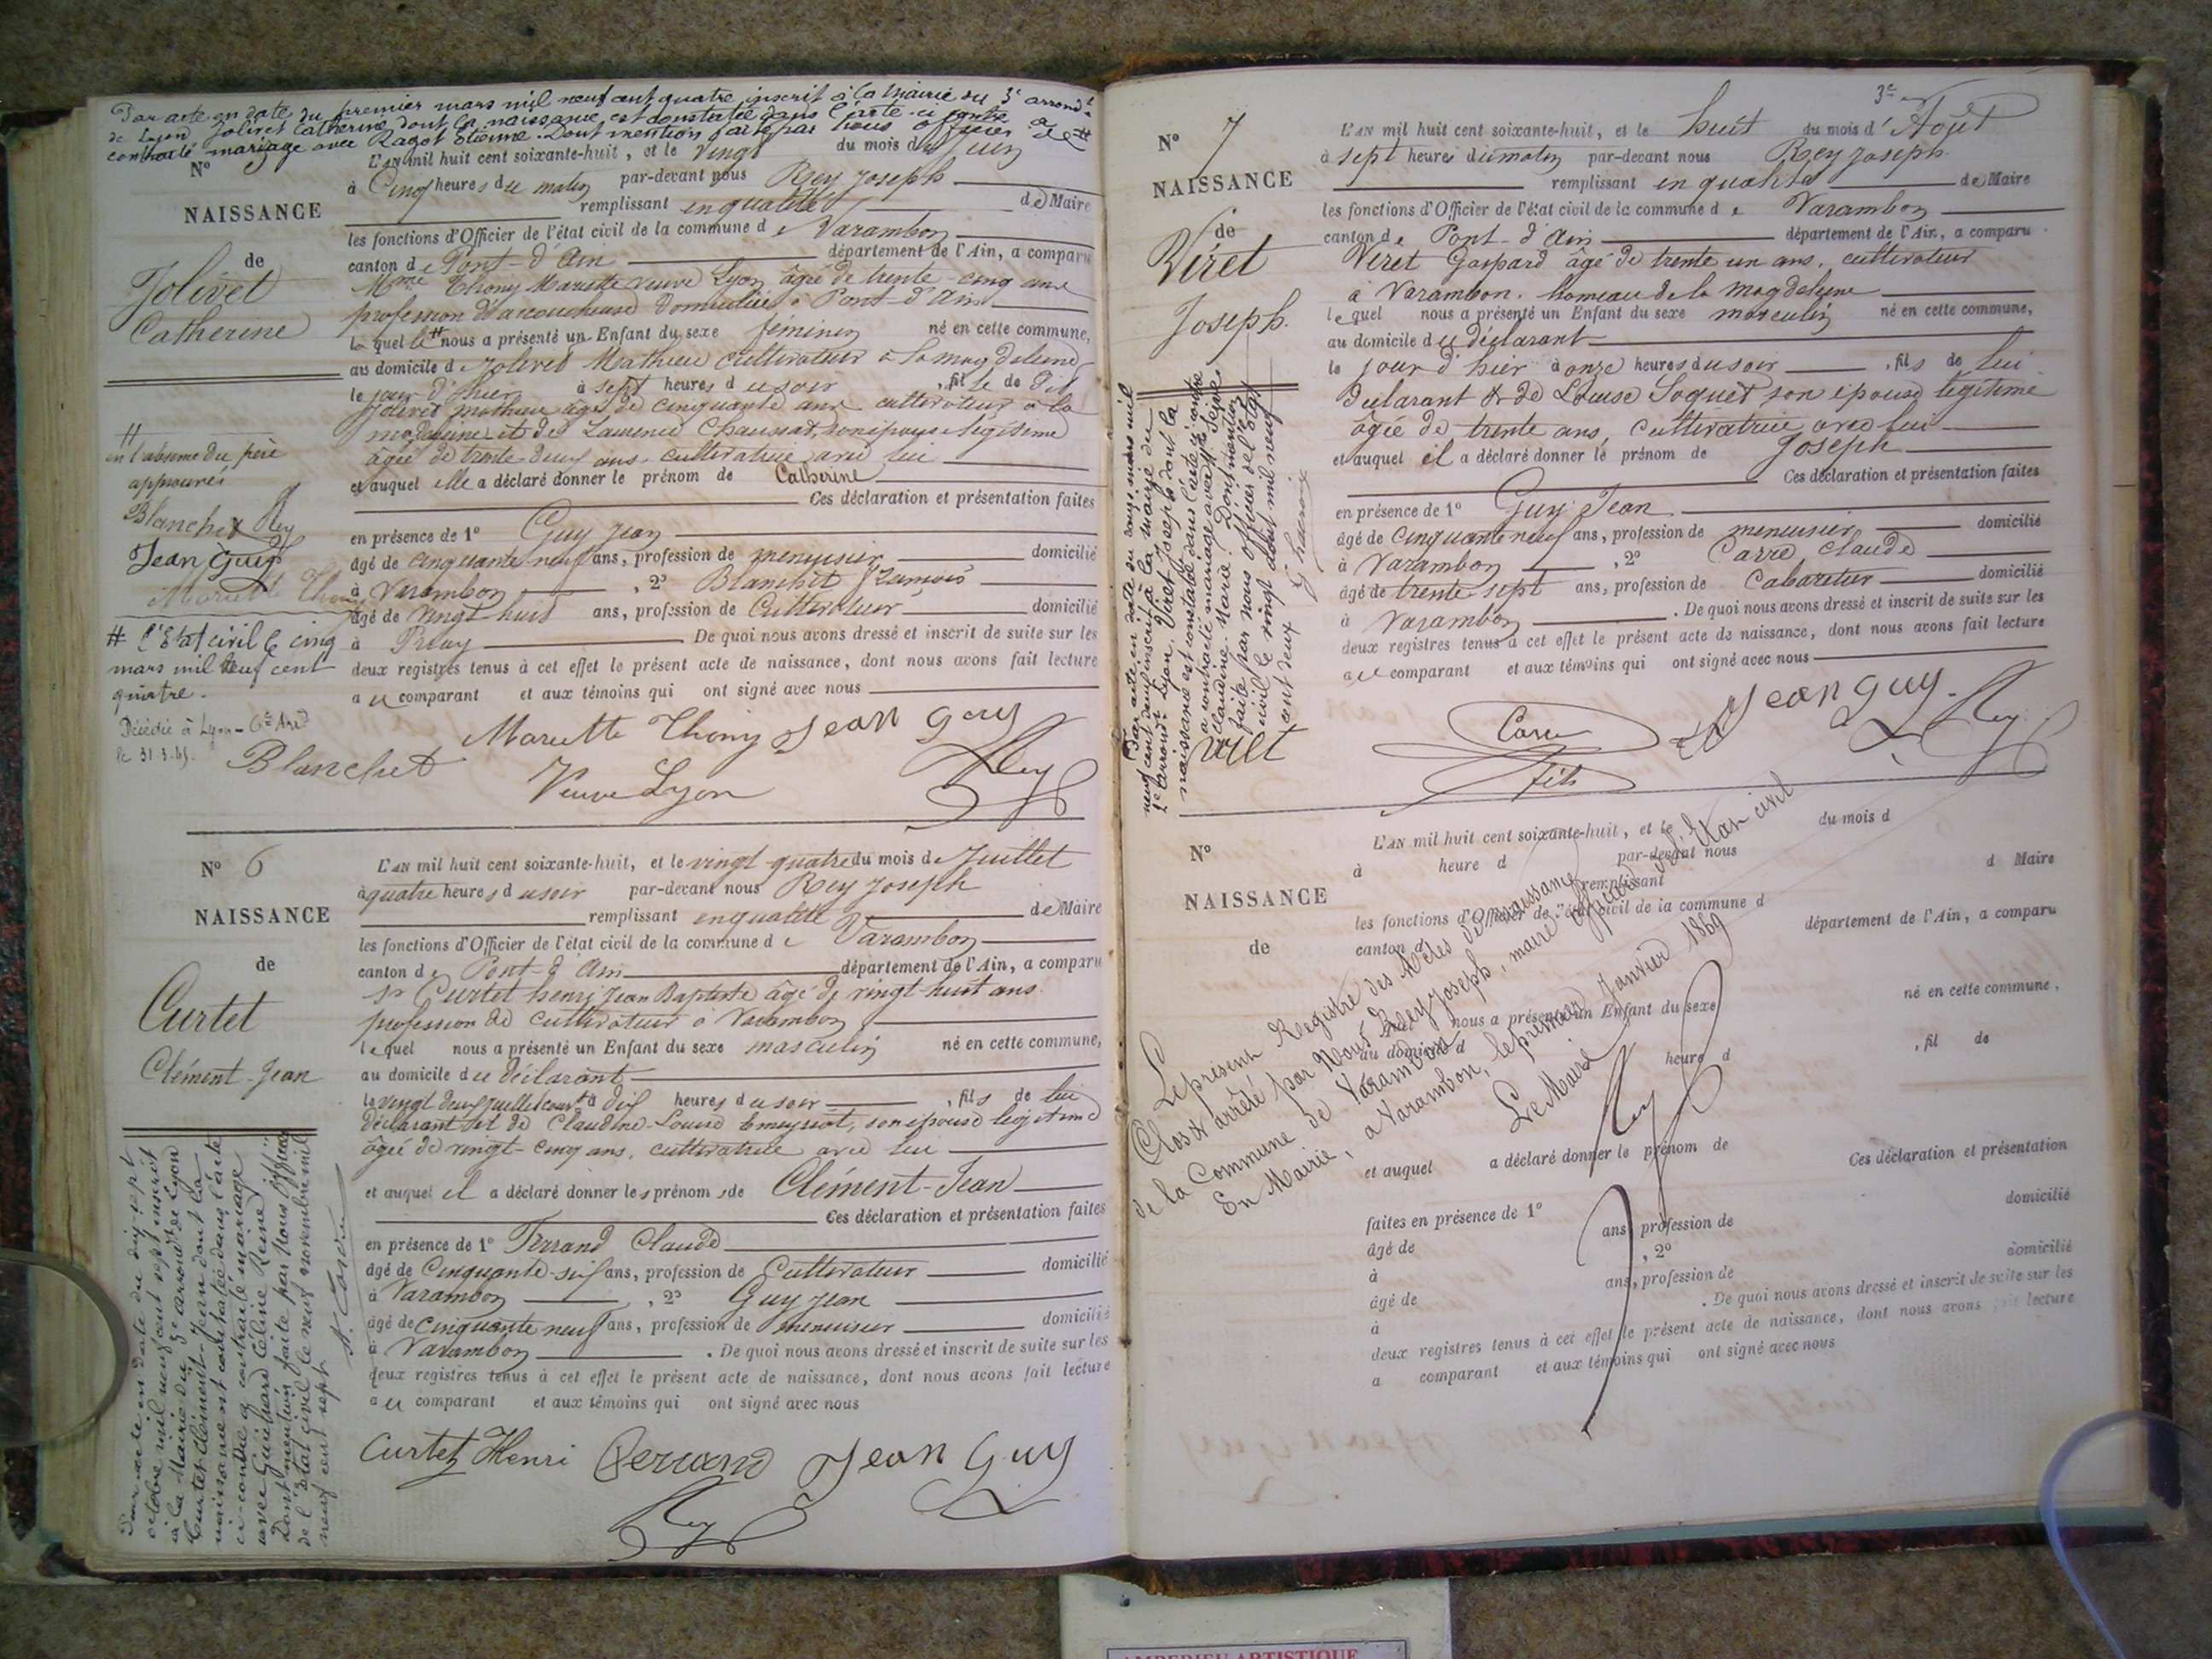 Par acte en date du premier mars mil neuf cent quatre inscrit à la Mairie du 3e arrondt
de Lyon Jolivet Catherine dont la naissance est constatée dans l'acte ci-contre a
contracté mariage avec Ragot Etienne. Dont mention faite par nous officier de #
No 5
NAISSANCE
de
Jolivet
Catherine
L'AN mil huit cent soixante-huit, et le vingt du mois de Juin
à Cinq heures du matin par-devant nous Rey Joseph
remplissant en qualité de Maire
les fonctions d'Officier de l'état civil de la commune de Varambon
canton de Pont-d'Ain département de l'Ain, a comparu
Mme Thony Mariette veuve Lyon âgée de trente-cinq ans
profession d'accoucheuse domiciliée à Pont-d'Ain
laquelle # nous a présenté un Enfant du sexe féminin né en cette commune,
au domicile de Jolivet Mathieu cultivateur à la magdeleine
le jour d'hier à sept heures du soir, fille de dit
Jolivet mathieu âgé de cinquante ans cultivateur à la
magdeleine et de Laurence Chaussat, son épouse légitime
âgée de trente-deux ans, cultivatrice avec lui
et auquel elle a déclaré donner le prénom de Catherine
Ces déclaration et présentation faites
en présence de 1o Guy Jean
âgé de cinquante neuf ans, profession de menuisier domicilié
à Varambon, 2o Blanchet François
âgé de vingt huit ans, profession de Cultivateur domicilié
à Priay De quoi nous avons dressé et inscrit de suite sur les
deux registres tenus à cet effet le présent acte de naissance, dont nous avons fait lecture
au comparant et aux témoins qui ont signé avec nous
#
en l'absence du père
approuvés
Blanchet Rey
Jean Guy
Mariette Thony
# l'Etat civil le cinq
mars mil neuf cent
quatre.
Décédée à Lyon - 6e Ard
le 31.3.45.
Mariette Thony Jean Guy
Blanchet Veuve Lyon Rey
No 6
NAISSANCE
de
Curtet
Clément-Jean
L'AN mil huit cent soixante-huit, et le vingt-quatre du mois de Juillet
à quatre heures du soir par-devant nous Rey Joseph
remplissant en qualité de Maire
les fonctions d'Officier de l'état civil de la commune de Varambon
canton de Pont-d'Ain département de l'Ain, a comparu
Sr Curtet henri Jean Baptiste âgé de vingt-huit ans
profession de cultivateur à Varambon
lequel nous a présenté un Enfant du sexe masculin né en cette commune,
au domicile du déclarant
le vingt deux juillet court à dix heures du soir, fils de lui
déclarant et de Claudine-Louise son épouse légitime
âgée de vingt-cinq ans, cultivatrice avec lui
et auquel il a déclaré donner les prénoms de Clément-Jean
Ces déclaration et présentation faites
en présence de 1o Ferrand Claude
âgé de Cinquante-six ans, profession de Cultivateur domicilié
à Varambon, 2o Guy Jean
âgé de cinquante neuf ans, profession de menuisier domicilié
à Varambon. De quoi nous avons dressé et inscrit de suite sur les
deux registres tenus à cet effet le présent acte de naissance, dont nous avons fait lecture
au comparant et aux témoins qui ont signé avec nous
Par acte en date du dix-sept
octobre mil neuf cent sept inscrit
à la Mairie du 3e arrondt de Lyon
Curtet Clément-Jean dont la
naissance est constatée dans l'acte
ci-contre a contracté mariage
avec Guichard Céline Reine
Dont mention faite par Nous Officier
de l'état civil le neuf novembre mil
neuf cent sept
Curtet Henri Ferrand Jean Guy
Rey
3e
No 7
NAISSANCE
de
Viret
Joseph.
L'AN mil huit cent soixante-huit, et le huit du mois d'Août
à sept heures du matin par-devant nous Rey Joseph.
remplissant en qualité de Maire
les fonctions d'Officier de l'état civil de la commune de Varambon
canton de Pont-d'Ain département de l'Ain, a comparu
Viret Gaspard âgé de trente un ans, cultivateur
à Varambon. hameau de la magdeleine
lequel nous a présenté un Enfant du sexe masculin né en cette commune,
au domicile du déclarant
le jour d'hier à onze heures du soir, fils de lui
déclarant & de Louise Soquet son épouse légitime
âgée de trente ans, Cultivatrice avec lui
et auquel il a déclaré donner le prénom de Joseph
Ces déclaration et présentation faites
en présence de 1o Guy Jean
âgé de cinquante neuf ans, profession de menuisier domicilié
à Varambon, 2o Carre Claude
âgé de trente sept ans, profession de Cabaretier domicilié
à Varambon. De quoi nous avons dressé et inscrit de suite sur les
deux registres tenus à cet effet le présent acte de naissance, dont nous avons fait lecture
au comparant et aux témoins qui ont signé avec nous
Par acte en date du douze mars mil
neuf cent deux inscrit à la mairie du
arrondt Lyon, Viret Joseph dont la
naissance est constatée dans l'acte ci-contre
a contracté mariage avec
Claudine Marie. Dont mention
faite par nous officier de l'état
civil le vingt août mil neuf
cent deux
viret Carre fils Jean Guy. Rey
No
NAISSANCE
de
L'AN mil huit cent soixante-huit, et le du mois d
à heure d par-devant nous
remplissant d Maire
les fonctions d'Officier de l'état civil de la commune d
canton d département de l'Ain, a comparu
nous a présenté un Enfant du sexe né en cette commune,
au domicile d
heure d, fil de
et auquel a déclaré donner le prénom de
Ces déclaration et présentation
faites en présence de 1o
âgé de ans, profession de domicilié
à, 2o
âgé de ans, profession de domicilié
à. De quoi nous avons dressé et inscrit de suite sur les
deux registres tenus à cet effet le présent acte de naissance, dont nous avons fait lecture
a comparant et aux témoins qui ont signé avec nous
Le présent Registre des Actes de naissance
Clos & arrêté par Nous Rey Joseph, maire Officier de l'Etat civil
de la Commune de Varambon
En Mairie, à Varambon, le premier Janvier 1869
Le Maire
Rey
AMBERIEU ARTISTIQUE